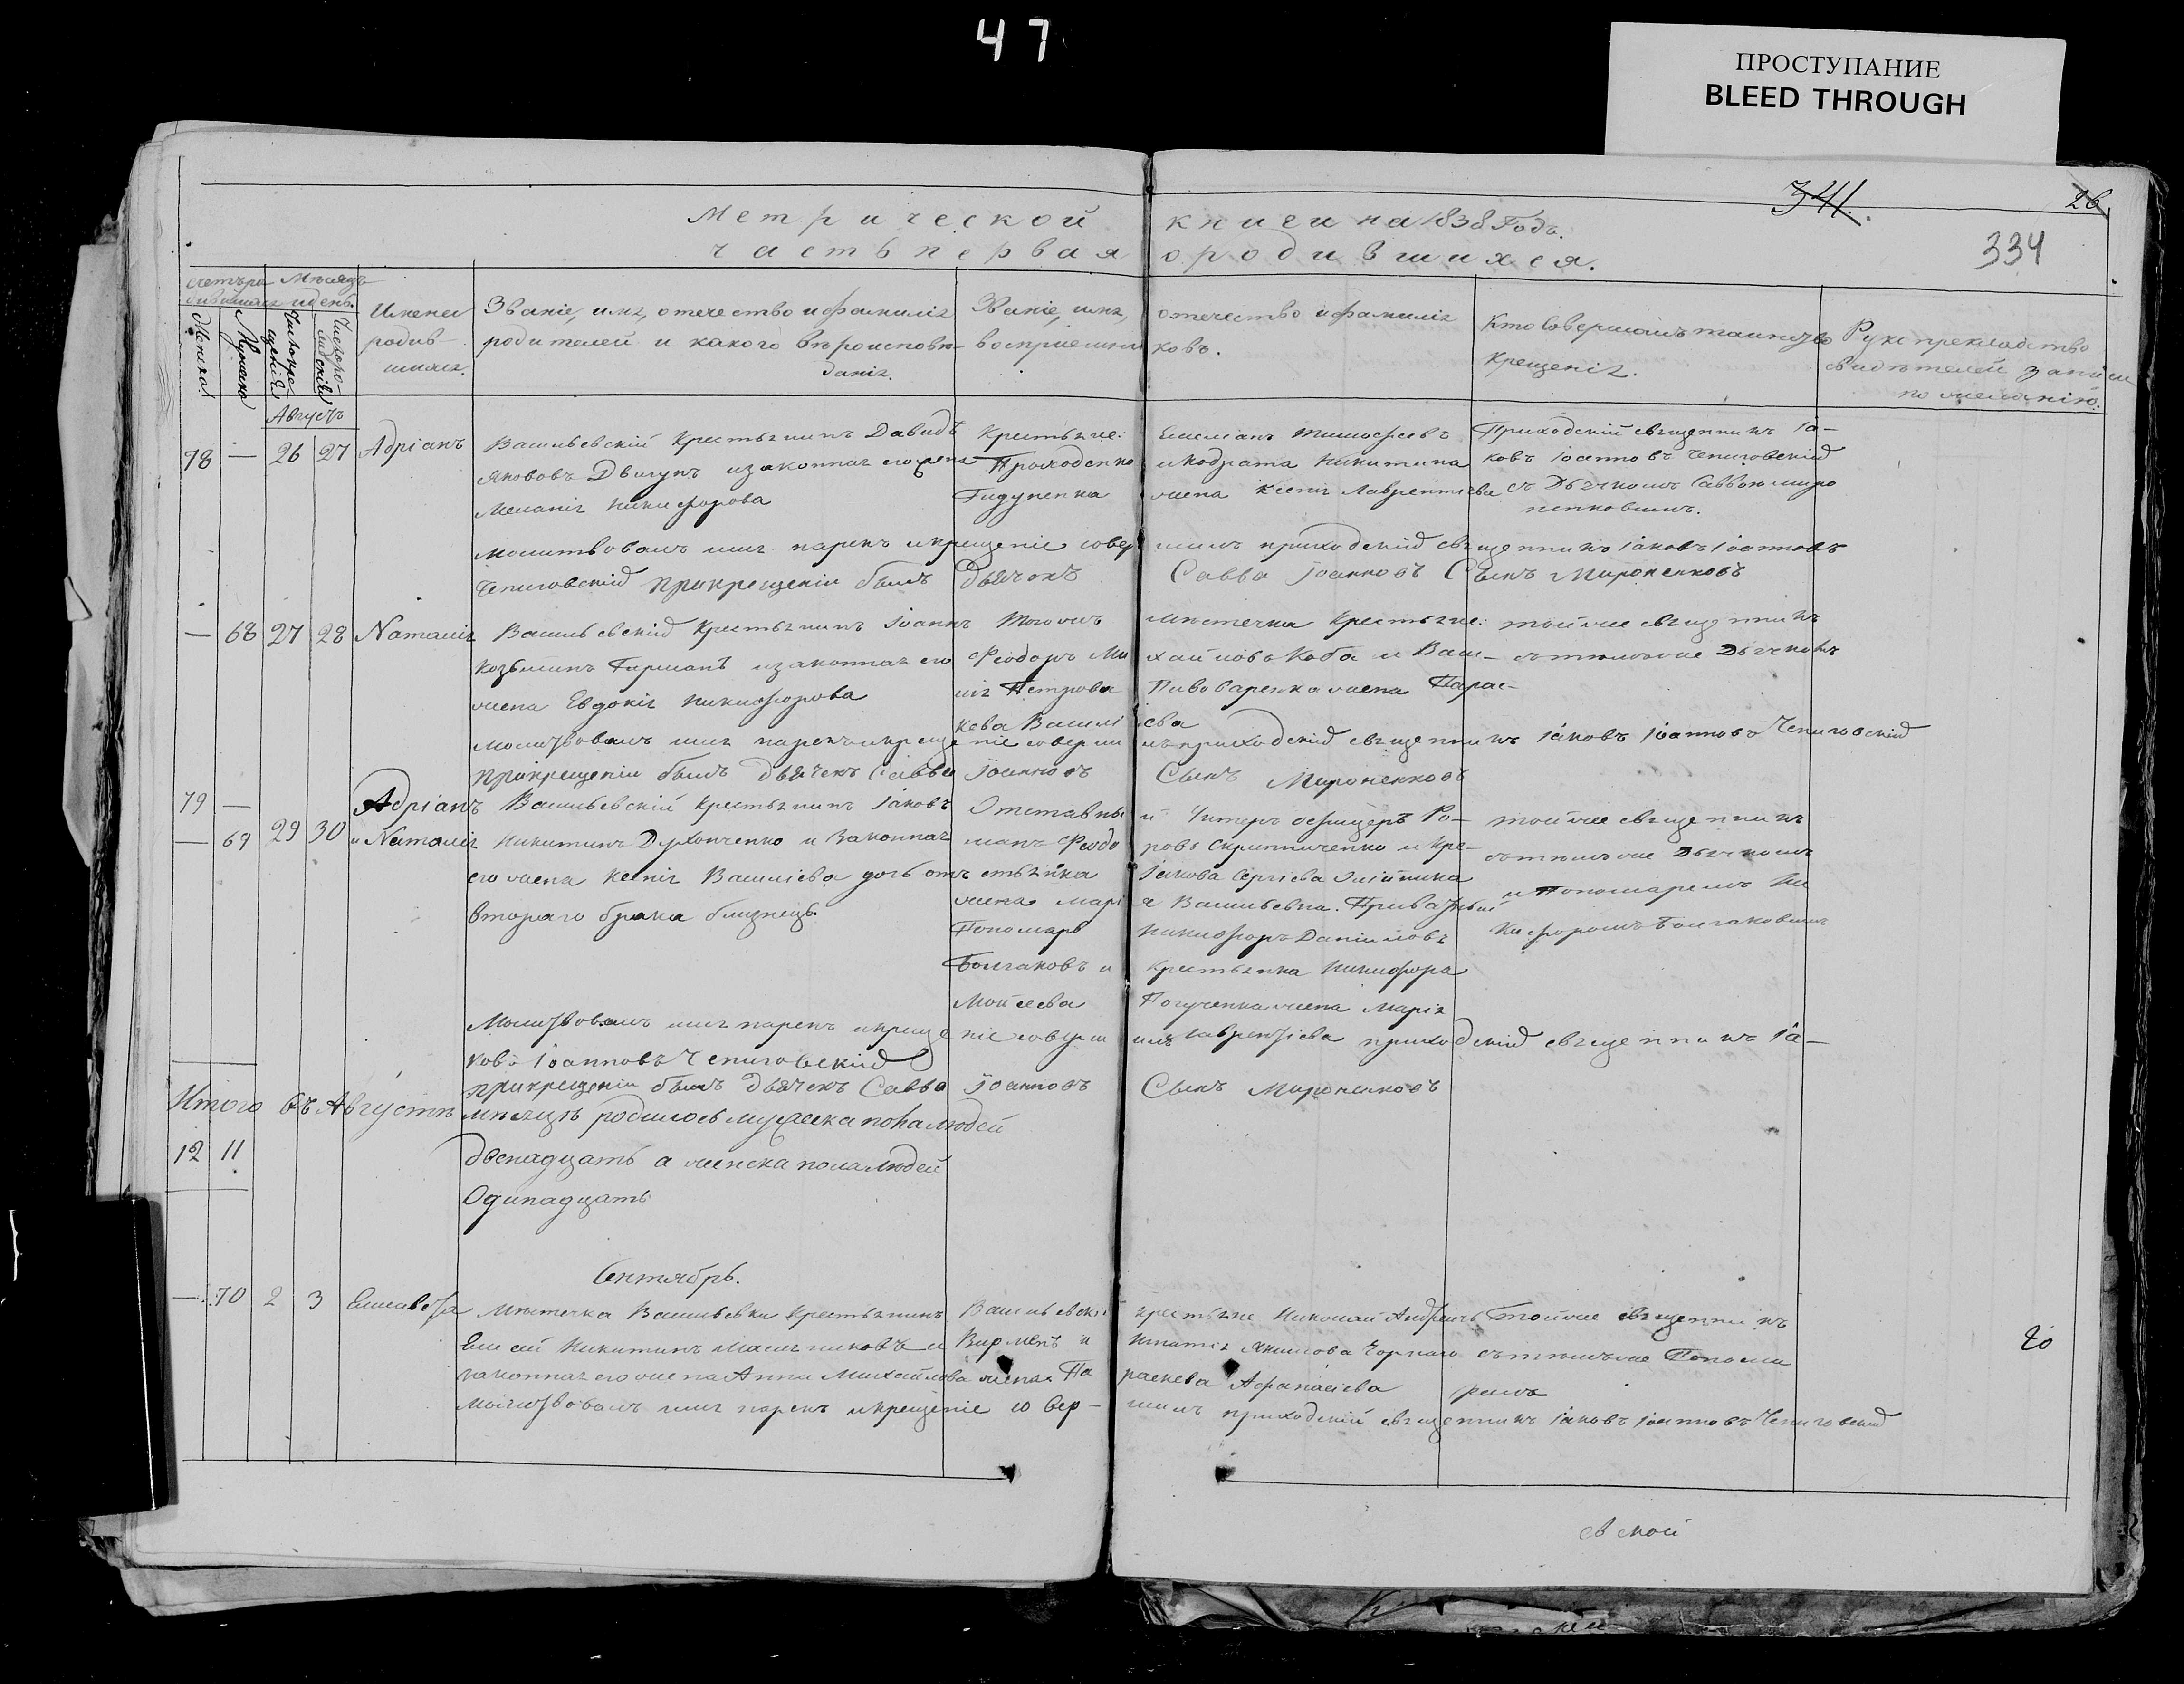 47
ПРОСТУПАНИЕ
BLEED THROUGH
341.
26
334
Метрической книги на 1838 Годъ.
часть первая о родившихся.
Мѣсяцъ
и день.
Имена
родив-
шихся.
Званіе, имя, отечество и фамилія
родителей и какого вѣроисповѣ-
данія.
Званіе, имя, отечество и фамилія
воспріемниковъ.
Кто Совершалъ таинство
Крещенія.
Рукоприкладство
свидѣтелей записи
по желанію.
Августъ
78 — 26 27 Адріанъ
Васильевскій Крестьянинъ Давидъ
Якововъ Двигунъ и законная его жена
Меланія Никифорова
Крестьяне: Емеліанъ Тимофеевъ
Проходенко и Кодрата Никитина
жена Ксенія Лаврентіева
Приходскій священникъ Іа-
ковъ Іоанновъ Чепиговскій
съ Дьячкомъ Саввою Миро
ненковымъ.
молитвовалъ имя нарекъ и крещеніе совершилъ приходскій священникъ Іаковъ Іоанновъ
Чепиговскій при крещеніи былъ дьячокъ Савва Іоанновъ Сынъ Мироненковъ
— 68 27 28 Наталія
Васильевскій Крестьянинъ Іоаннъ
Козьминъ Германъ и законная его
жена Евдокія Никифорова
Тогожъ мѣстечка Крестьяне:
Феодоръ Михайловъ Коба и Васи-
лія Петрова Пивоваренка жена Парас-
кева Василіева
тойже священникъ
съ тѣмъже Дьячкомъ
молитвовалъ имя нарекъ и крещеніе совершилъ приходскій священникъ Іаковъ Іоанновъ Чепиговскій
при крещеніи былъ дьячекъ Савва Іоанновъ Сынъ Мироненковъ
79 —
— 69 29 30
Адріанъ
и Наталія
Васильевскій Крестьянинъ Іаковъ
Никитинъ Духонченко и Законная
его жена Ксенія Василіева
втораго брака близнецъ.
Отставный Унтеръ офицеръ Ро-
манъ Феодоровъ Скрипниченко и Кре-
стьянка Іакова Сергіева Олійника
жена Марія Васильевна.
Пономарь Никифоръ Даніиловъ
Болгаковъ и Крестьянка Никифора
Моисеева жена Марія
Лаврентіева
тойже священникъ
съ тѣмъже Дьячкомъ
и Пономаремъ Ни
кифоромъ Болгаковымъ
Молитвовалъ имя нарекъ и крещеніе совершилъ приходскій священникъ Іа-
ковъ Іоанновъ Чепиговскій
при крещеніи былъ дьячекъ Савва Іоанновъ Сынъ Мироненковъ
Итого въ Августѣ мѣсяцѣ родилось мужеска пола людей
12 11
двенадцать а женска пола людей
Одинадцать
Сентябрь.
— 70 2 3 Елисавета
Мѣстечка Васильевки Крестьянинъ
Елисей Никитинъ Масляниковъ и
законная его жена Анна Михайлова
крестьяне Николай Андреевъ
и Игнатія Якимова Чорнаго
жена Параскева Афанасіева
Тойже священникъ
съ тѣмъже Понома
ремъ
Молитвовалъ имя нарекъ и крещеніе совершилъ приходскій священникъ Іаковъ Іоанновъ Чепиговскій
20